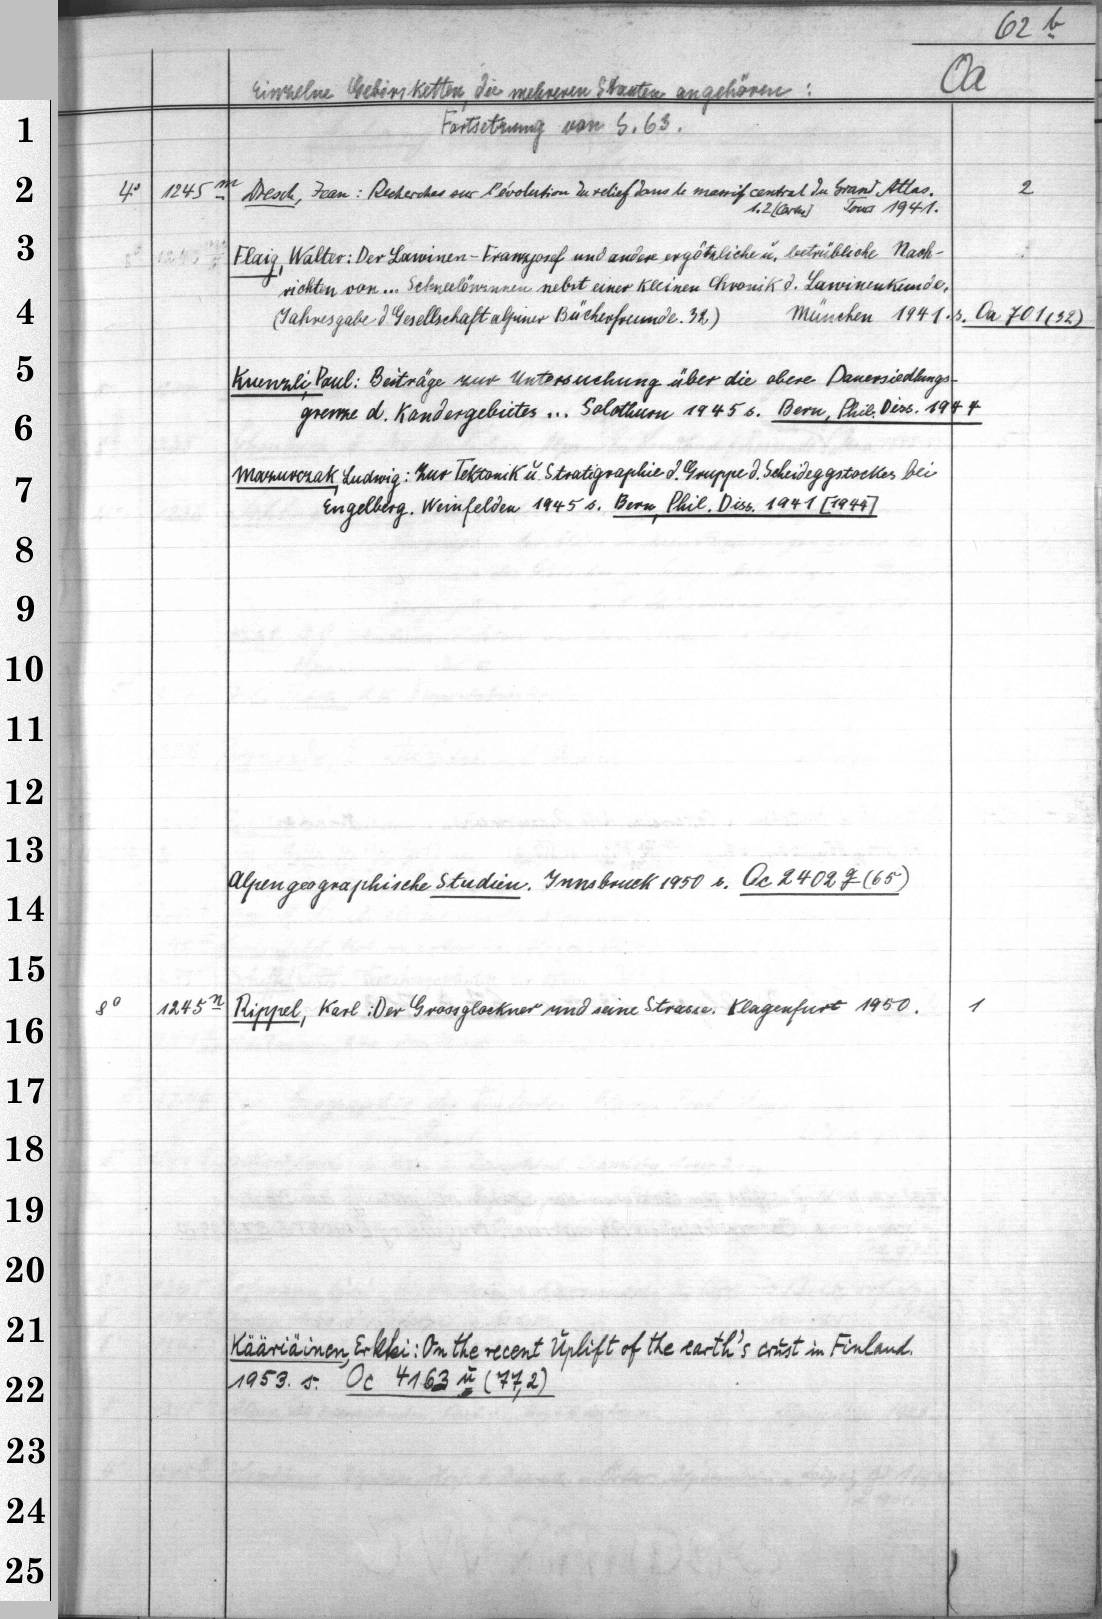 62 b
Oa
Einzelne Gebirgsketten, die mehreren Staaten angehören:
Fortsetzung von S. 63.
1
2
4° 1245 m Dresch, Jean: Recherches sur l'évolution du relief dans le massif central du Grand Atlas. 2
1.2 [Cartes] Tours 1941.
3
Flaig, Walter: Der Lawinen-Franzjosef und andere ergötzliche u. betrübliche Nach-
richten von... Schneelöwinnen nebst einer kleinen Chronik d. Lawinenkunde.
4
(Jahresgabe d Gesellschaft alpiner Bücherfreunde. 32.) München 1941. s. Oa 701 (32)
5
Kuenzli, Paul: Beiträge zur Untersuchung über die obere Dauersiedlungs-
grenze d. Kandergebietes ... Solothurn 1945 s. Bern, Phil. Diss. 1944
6
Mazurczak, Ludwig: Zur Tektonik u. Stratigraphie d. Gruppe d. Scheideggstockes bei
7
Engelberg. Weinfelden 1945 s. Bern, Phil. Diss. 1941 [1944]
8
9
10
11
12
13
Alpengeographische Studien. Innsbruck 1950 s. Oc 2402 g (65)
14
15
8° 1245 n Rippel, Karl: Der Grossglockner und seine Strasse. Klagenfurt 1950. 1
16
17
18
19
20
21
Kääriäinen, Erkki: On the recent Uplift of the earth's crust in Finland.
22
1953. s. Oc 4163 u (77,2)
23
24
25